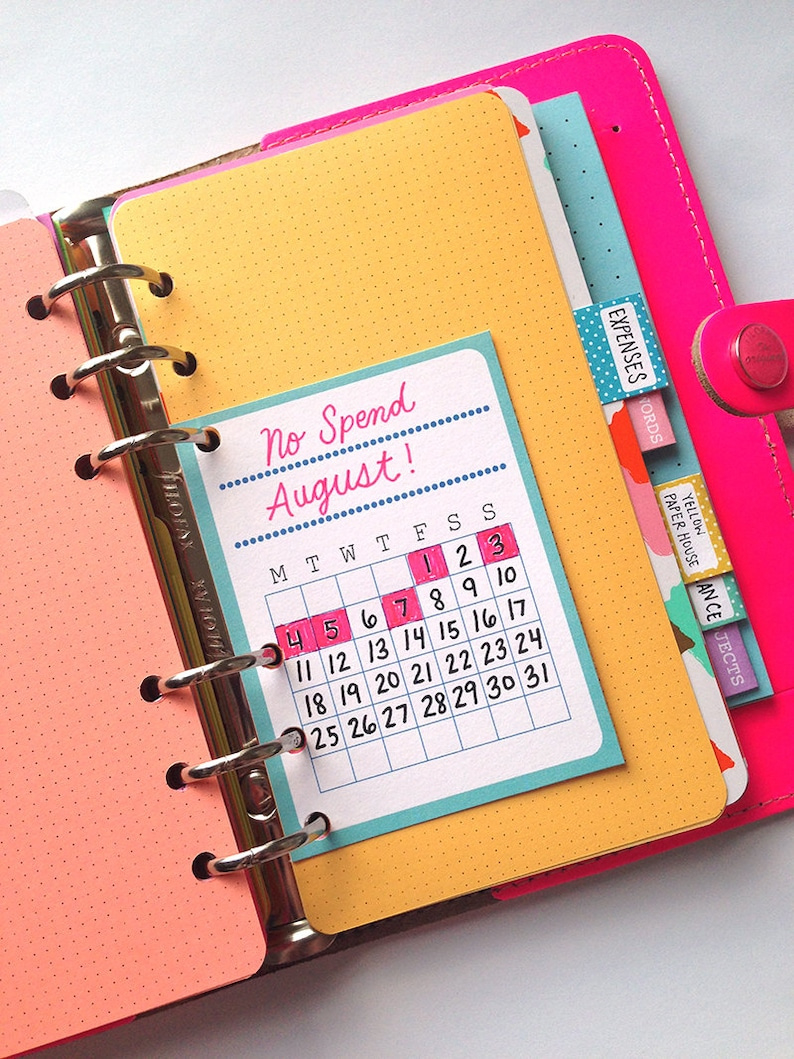 No Spend
August!
M T W T F S S
1 2 3
4 5 6 7 8 9 10
11 12 13 14 15 16 17
18 19 20 21 22 23 24
25 26 27 28 29 30 31
EXPENSES
WORDS
YELLOW
PAPER HOUSE
ANCE
JECTS